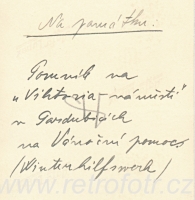 Na památku:
Pomník na
„Viktoria-náměstí"
v Pardubicích
na Vánoční pomoc
/Winterhilfswerk/
© www.retrofotr.cz